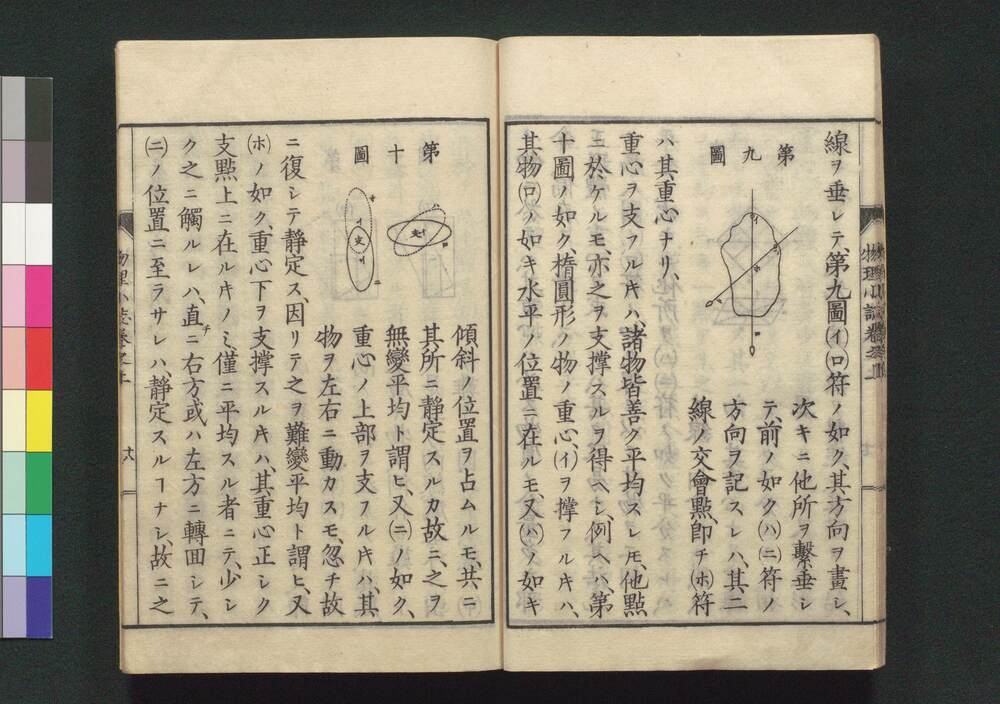 線ヲ垂レテ、第九圖㋑㋺符ノ如ク、其方向ヲ畫シ、
第九圖
次キニ他所ヲ繫垂シ
テ、前ノ如ク㋩㋥符ノ
方向ヲ記スレハ、其二
線ノ交會點、卽チ㋭符
ハ其重心ナリ、
重心ヲ支フルヰハ、諸物皆善ク平均スレ𪜈、他點
ニ於ケルモ、亦之ヲ支撑スルヲ得ヘシ、例ヘハ、第
十圖ノ如ク、楕圓形ノ物ノ重心㋑ヲ撑フルヰハ、
其物㋺ノ如キ水平ノ位置ニ在ルモ、又㋩ノ如キ
第十圖
傾斜ノ位置ヲ占ムルモ、共ニ
其所ニ静定スルカ故ニ、之ヲ
無變平均ト謂ヒ、又㋥ノ如ク、
重心ノ上部ヲ支フルヰハ、其
物ヲ左右ニ動カスモ、忽チ故
ニ復シテ静定ス、因リテ之ヲ難變平均ト謂ヒ、又
㋭ノ如ク、重心下ヲ支撑スルヰハ、其重心正シク
支點上ニ在ルヰノミ、僅ニ平均スル者ニテ、少シ
ク之ニ觸ルレハ、直チニ右方或ハ左方ニ轉回シテ、
㋥ノ位置ニ至ラサレハ、静定スルヿナシ、故ニ之